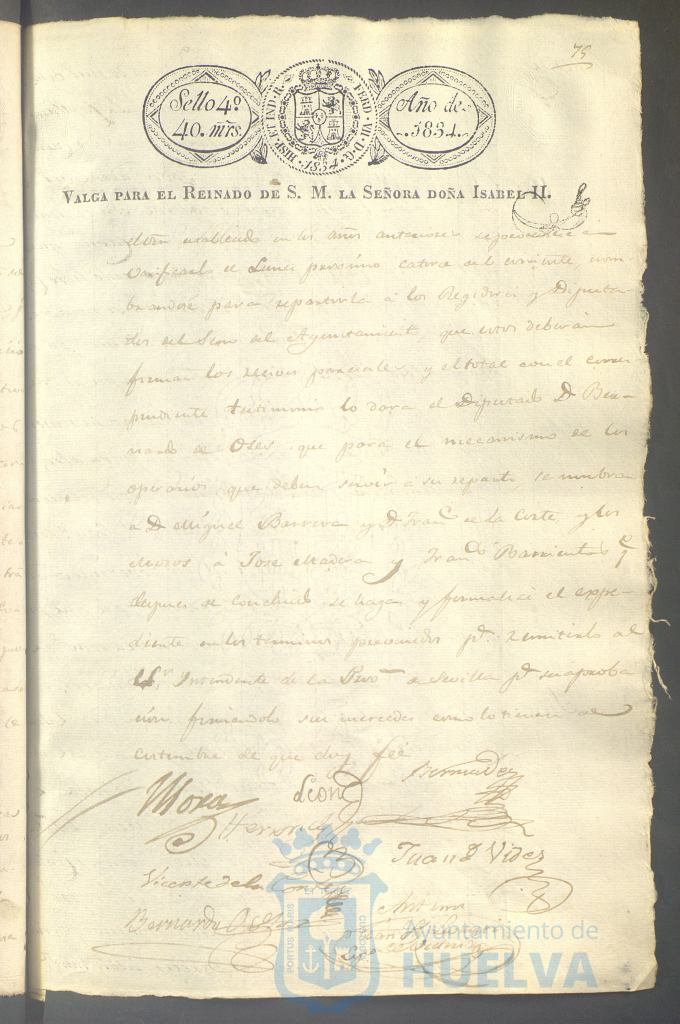 75
Sello 4º
40. mrs.
HISP. ET IND. R. FERD. VII. D. G. 1834
Año de
1834.
VALGA PARA EL REINADO DE S. M. LA SEÑORA DOÑA ISABEL II.
en los años anteriores
el Lunes proximo catorce del corriente, nom-
brandose para repartirla á los Regidores y Diputa-
dos del Seno del Ayuntamiento, que estos deberán
firmar los parciales, y el total con el corres-
pondiente testimonio lo dara el Diputado D. Ber-
nardo de Oses, que para el mecanismo de los
operarios que deben servir á su reparto, se nombra
a D. Miguel Barrera y D. Franco. de la Corte, y los
Mozos, á Jose Madera y Franco. Barrientos q
despues de concluido se haga y formalice el expe-
diente en los terminos pa. remitirlo al
Sr. Intendente de la Prova. de Sevilla pa. su aproba
cion firmandolo sus mercedes como lo tienen de
costumbre de que doy fee
Mora
Leon
Bermudez
Juan D Videz
Vicente de la Corte
Bernardo Oses
Antemi
PORTUS MARIS
Ayuntamiento de
HUELVA